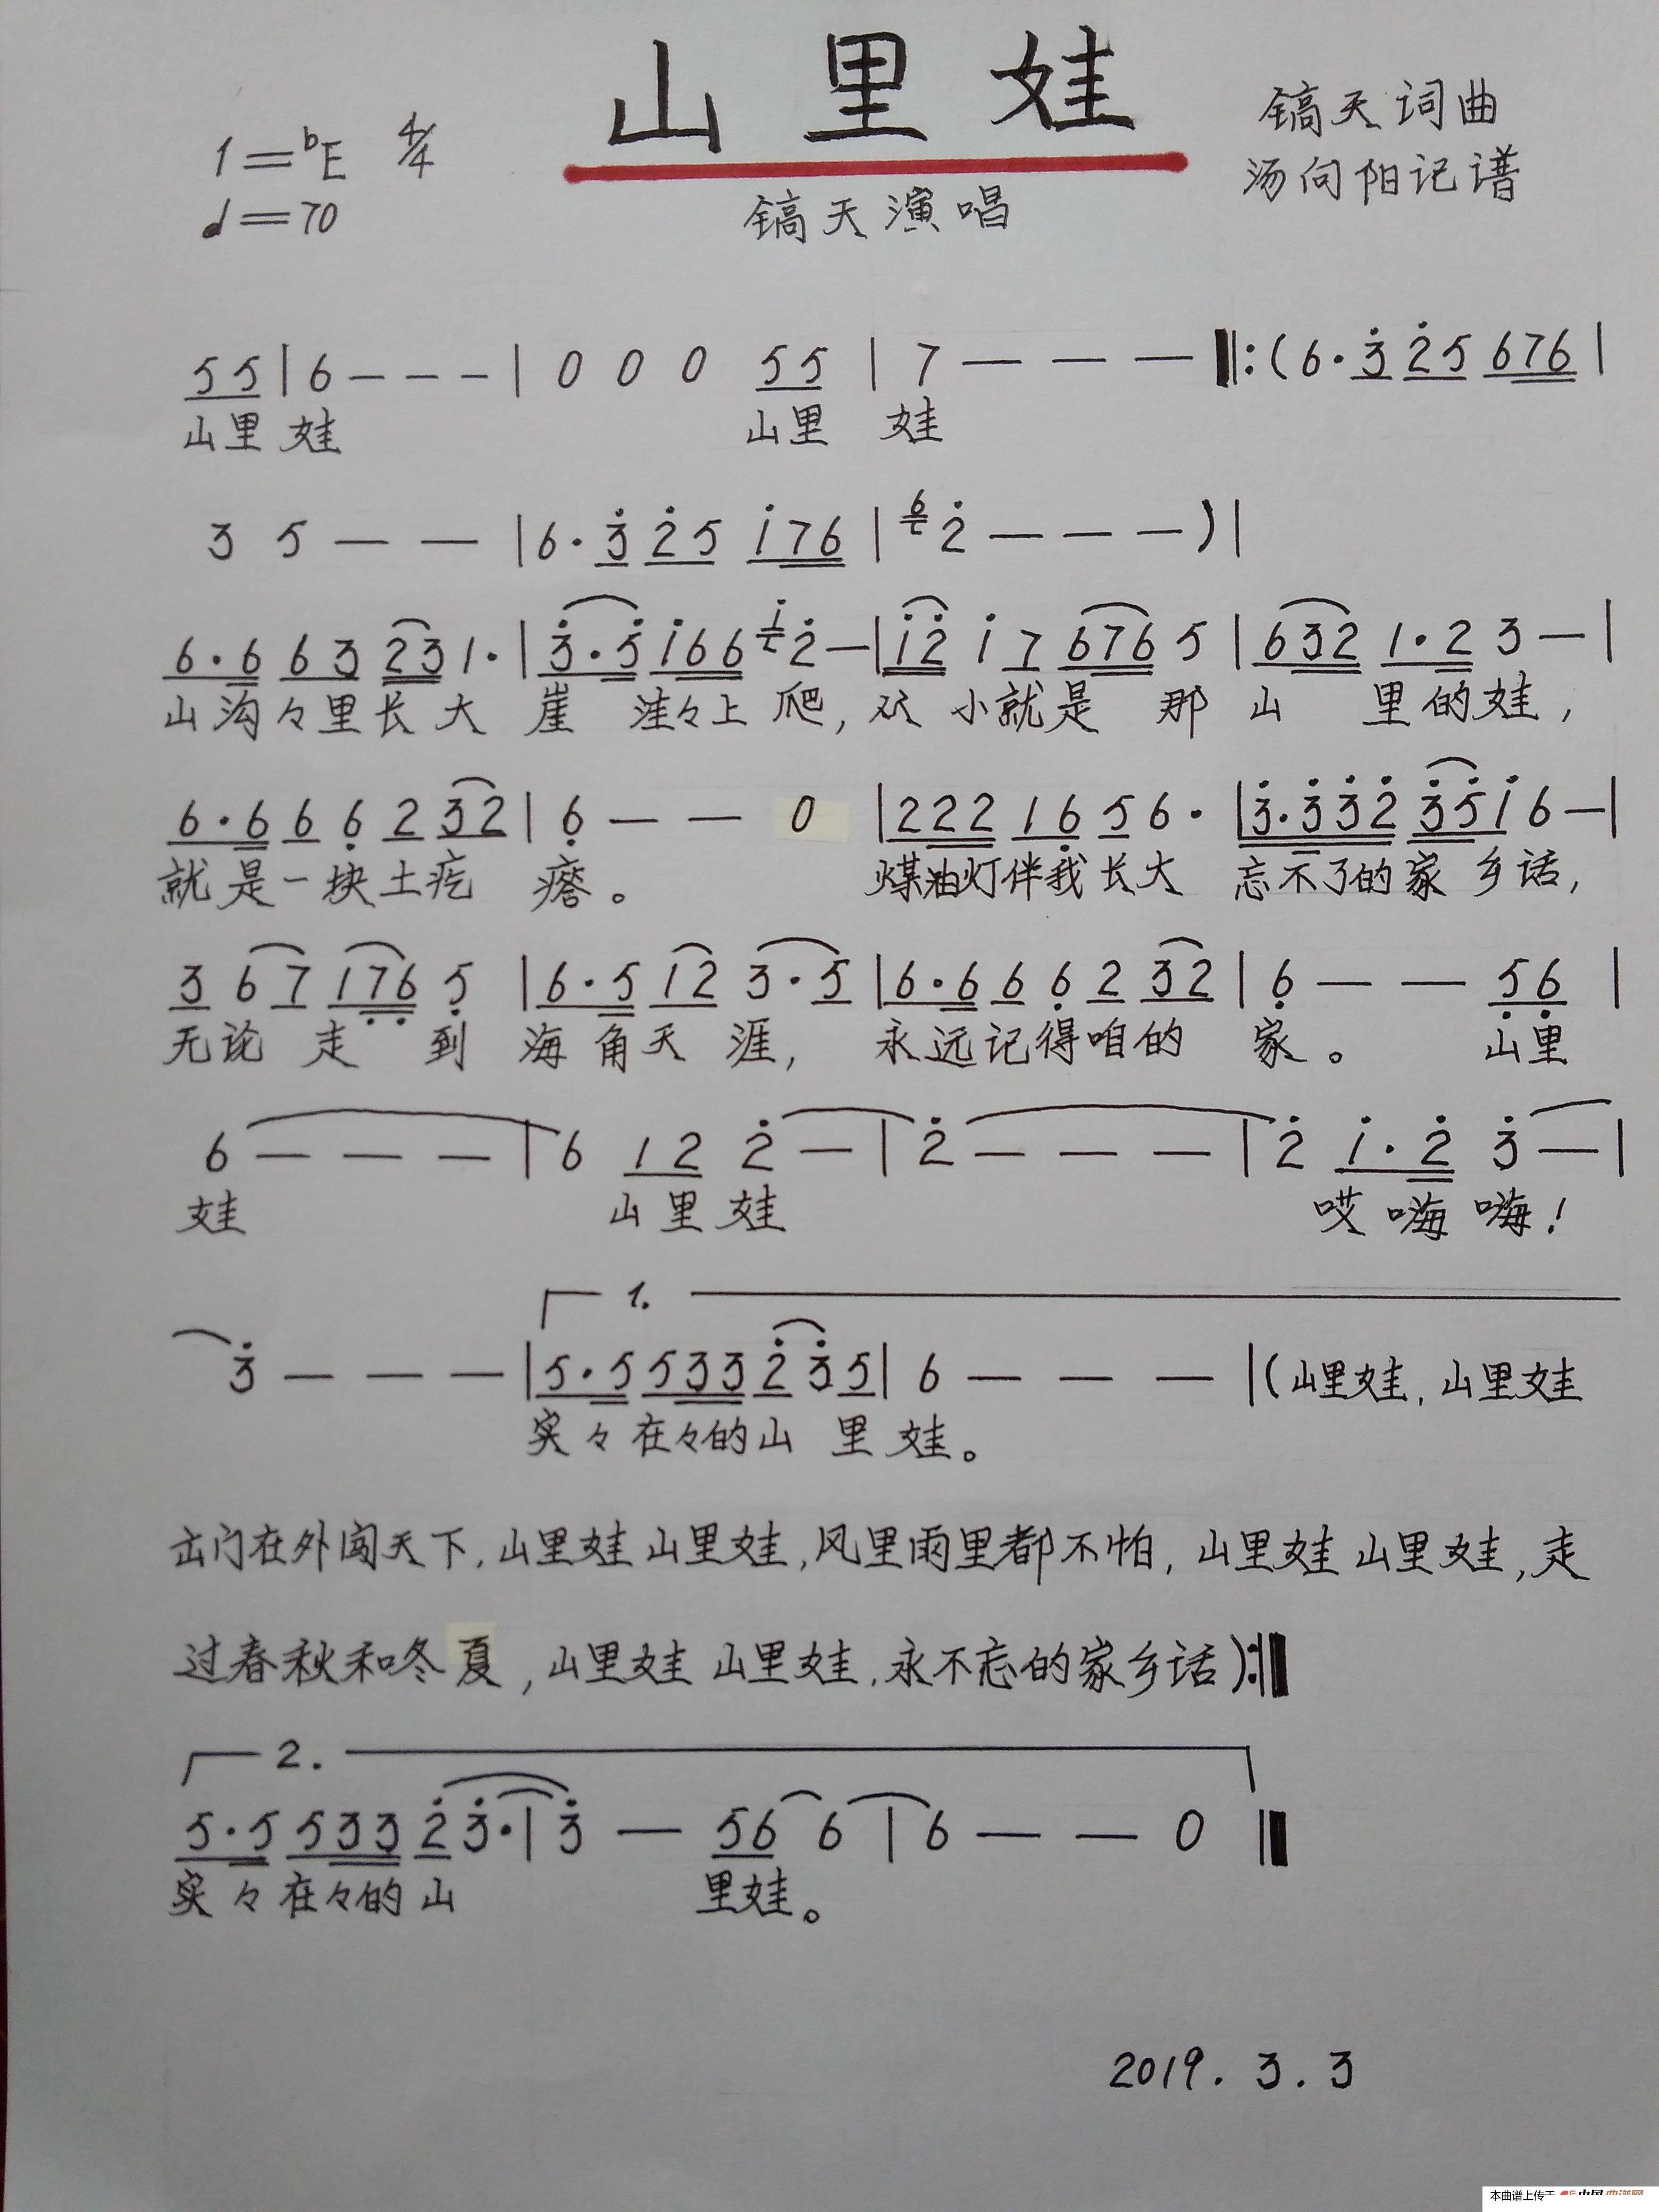 山里娃
1=♭E 4/4
镐天词曲
汤向阳记谱
♩=70
镐天演唱
5 5 | 6 – – – | 0 0 0 5 5 | 7 – – – ‖: ( 6 · 3̇ 2̇ 5 6 7 6 |
山里娃 山里 娃
3 5 – – | 6 · 3̇ 2̇ 5 1̇ 7 6 | 6 2̇ – – – ) |
6 · 6 6 3 2 3 1 · | 3̇ · 5̇ 1̇ 6 6 1̇ 2̇ – | 1̇ 2̇ 1̇ 7 6 7 6 5 | 6 3 2 1 · 2 3 – |
山沟々里长大 崖 洼々上爬, 从小就是 那 山 里的娃,
6 · 6 6 6̣ 2 3 2 | 6̣ – – 0 | 2 2 2 1 6̣ 5 6 · | 3̇ · 3̇ 3̇ 2̇ 3̇ 5̇ 1̇ 6 – |
就是一块土疙 瘩。 煤油灯伴我长大 忘不了的家乡话,
3 6 7 1 7̣ 6̣ 5̣ | 6 · 5 1 2 3 · 5 | 6 · 6 6 6̣ 2 3 2 | 6̣ – – 5̣ 6̣ |
无论 走 到 海角天 涯, 永远记得咱的 家。 山里
6 – – – | 6 1 2 2̇ – | 2̇ – – – | 2̇ 1̇ · 2̇ 3̇ – |
娃 山里娃 哎嗨嗨!
1.
3̇ – – – | 5 · 5 5 3 3 2̇ 3̇ 5 | 6 – – – | (山里娃, 山里娃
实々在々的山 里 娃。
出门在外闯天下, 山里娃 山里娃, 风里雨里都不怕, 山里娃 山里娃, 走
过春秋和冬夏, 山里娃 山里娃, 永不忘的家乡话) :‖
2.
5 · 5 5 3 3 2̇ 3̇ · | 3̇ – 5 6 6 | 6 – – 0 ‖
实々在々的山 里娃。
2019. 3. 3
本曲谱上传于